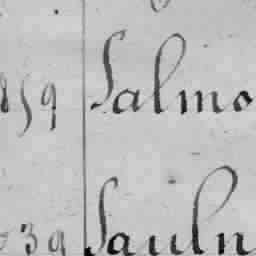 859 Salmo
039 Sauln